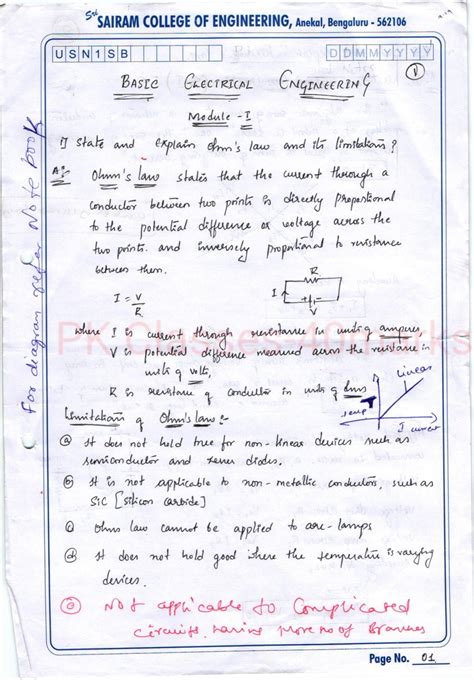 Sri SAIRAM COLLEGE OF ENGINEERING, Anekal, Bengaluru - 562106
USN1SB DDMMYYYY
1
BASIC ELECTRICAL ENGINEERING
Module - I
1] State and explain ohm's law and its limitations?
A:- Ohm's law states that the current through a
conductor between two points is directly proportional
to the potential difference or voltage across the
two points. and inversely proportional to resistance
between them.
I = V/R
R
I
V
where I is current through resistance in units of amperes
V is potential difference measured across the resistance in
units of volts
R is resistance of conductor in units of ohms
linear
temp
I current
Limitations of Ohm's law:-
a It does not hold true for non-linear devices such as
semiconductor and zener diodes.
b It is not applicable to non-metallic conductors, such as
SiC [silicon carbide]
c Ohms law cannot be applied to arc-lamps
d It does not hold good where the temperature is varying
devices.
e Not applicable to Complicated
circuits, having more no of Branches
For diagram refer Note book
PK Classes-40marks
Page No. 01